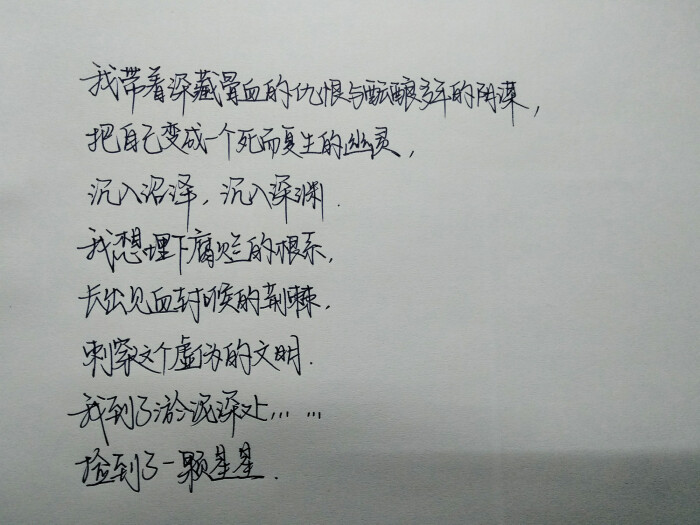 我带着深藏骨血的仇恨与酝酿多年的阴谋，
把自己变成一个死而复生的幽灵，
沉入沼泽，沉入深渊．
我想埋下腐烂的根系，
长出见血封喉的荆棘，
刺穿这个虚伪的文明．
我到了淤泥深处……
捡到了一颗星星．